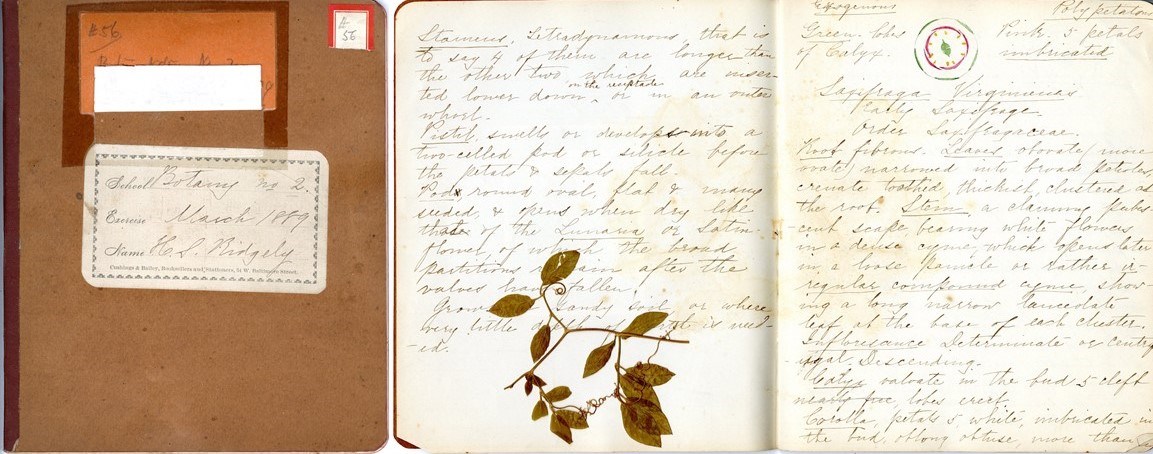 #56
#
56
School Botany no 2.
Exercise March 1889
Name H. S. Ridgely
Cushings & Bailey, Booksellers and Stationers,
Stamens, Tetradynamous, that is
to say 4 of them are longer than
the other two which are inser-
on the receptacle
ted lower down, or in an outer
whorl.
Pistil, swells or develops into a
two-celled pod or silicle before
the petals & sepals fall.
Pod round oval, flat & many
seeded, & opens when dry like
that of the Lunaria or Satin-
flower, of which the broad
partitions remain after the
valves have fallen.
Grows sandy soil, or where
very little depth of is need-
ed.
Exogenous
Polypetalous
Green lobes
of Calyx.
Pink. 5 petals
imbricated
Saxifraga Virginiensis
Early Saxifrage.
Order Saxifragaceae.
Root fibrous. Leaves obovate, more
ovate, narrowed into broad petioles,
crenate toothed, thickest, clustered at
the root. Stem, a clammy pubes-
cent scape, bearing white flowers
in a dense cyme, which opens later
in a loose panicle or rather ir-
regular compound cyme, show-
ing a long narrow lanceolate
leaf at the base of each cluster.
Infloresance Determinate or centri-
fugal, Descending.
Calyx valvate in the bud 5 cleft
nearly free, lobes erect.
Corolla, petals 5, white, imbricated in
the bud, oblong obtuse, more than